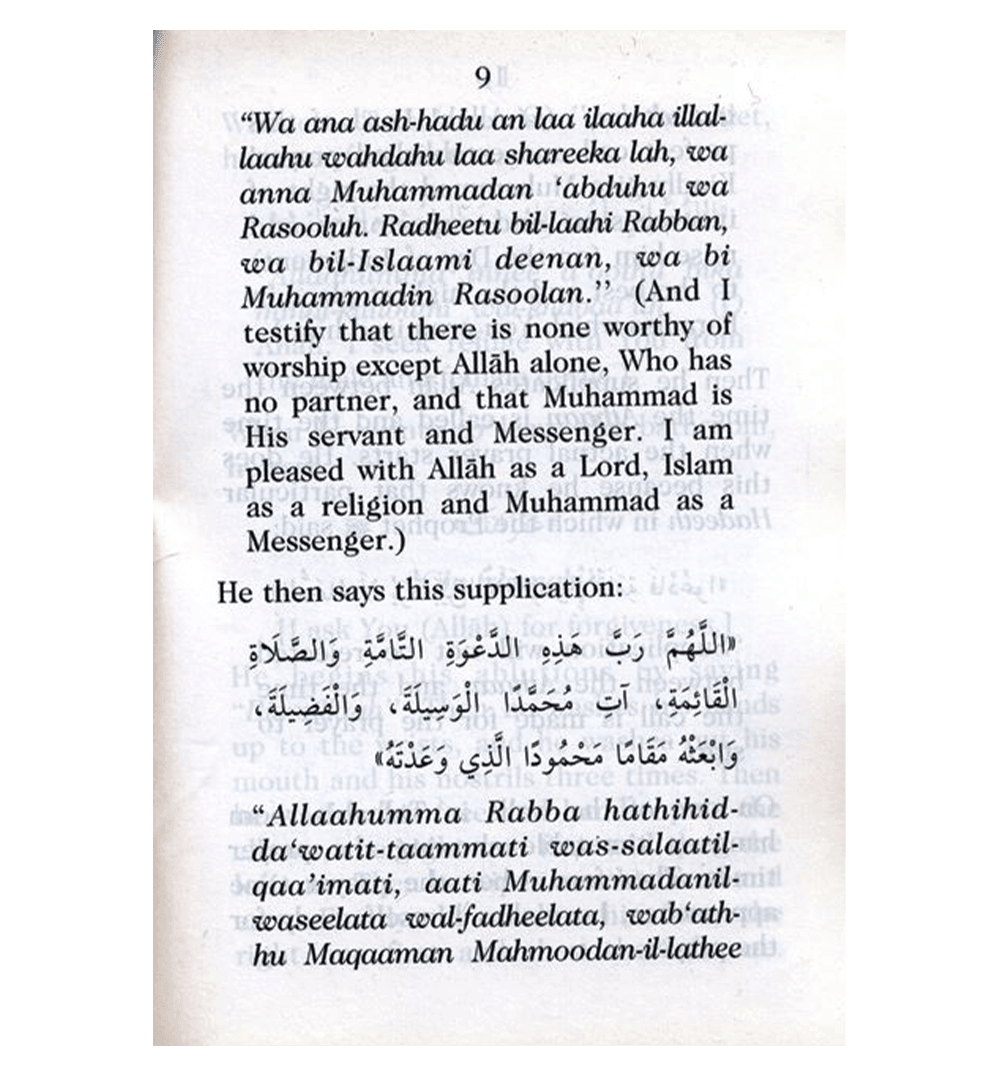 9
“Wa ana ash-hadu an laa ilaaha illal-
laahu wahdahu laa shareeka lah, wa
anna Muhammadan ‘abduhu wa
Rasooluh. Radheetu bil-laahi Rabban,
wa bil-Islaami deenan, wa bi
Muhammadin Rasoolan.’’ (And I
testify that there is none worthy of
worship except Allāh alone, Who has
no partner, and that Muhammad is
His servant and Messenger. I am
pleased with Allāh as a Lord, Islam
as a religion and Muhammad as a
Messenger.)
He then says this supplication:
«اللَّهُمَّ رَبَّ هَذِهِ الدَّعْوَةِ التَّامَّةِ وَالصَّلَاةِ
الْقَائِمَةِ، آتِ مُحَمَّدًا الْوَسِيلَةَ، وَالْفَضِيلَةَ،
وَابْعَثْهُ مَقَامًا مَحْمُودًا الَّذِي وَعَدْتَهُ»
“Allaahumma Rabba hathihid-
da‘watit-taammati was-salaatil-
qaa’imati, aati Muhammadanil-
waseelata wal-fadheelata, wab‘ath-
hu Maqaaman Mahmoodan-il-lathee